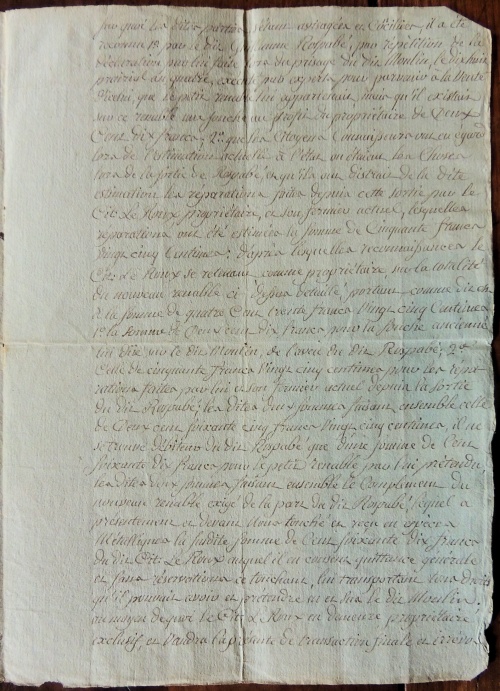 par quoi les dites parties s'étant arrangées et conciliées, il a été
reconnu 1o par le dit Guillaume Rospabé, par répétition de la
déclaration par lui faite lors du prisage du dit Moulin, le dix huit
prairial an quatre, exécuté par experts pour parvenir à la Vente
que le petit renable lui appartenait, mais qu'il existait
sur ce renable une souche au profit du propriétaire de Deux
Cent dix francs; 2o que les Citoyens Commissaires ont eu égard
lors de l'estimation actuelle à l'état où étaient les Choses
lors de la sortie de Rospabé, et qu'ils ont distrait de la dite
estimation les réparations faites depuis cette sortie par le
Cit. Le Roux propriétaire, et son fermier actuel, lesquelles
réparations ont été estimées la somme de Cinquante francs
Vingt cinq Centimes; d'après lesquelles reconnaissances le
Cit. Le Roux se retenant comme propriétaire sur la totalité
du nouveau renable ci-dessus détaillé, portant comme dit est
à la somme de quatre Cent trente francs Vingt cinq Centimes
1o la somme de Deux cent dix francs pour la souche ancienne
lui due sur le dit Moulin, de l'aveu du dit Rospabé; 2o
Celle de cinquante francs Vingt cinq centimes pour les répa-
rations faites par lui et son fermier actuel depuis la sortie
du dit Rospabé; les dites deux sommes faisant ensemble celle
de Deux cent soixante cinq francs Vingt cinq centimes, il ne
se trouve débiteur du dit Rospabé que d'une somme de Cent
Soixante dix francs pour le petit renable par lui prétendu
les dites deux sommes faisant ensemble le Complément du
nouveau renable exigé de la part du dit Rospabé, lequel a
présentement et devant Nous touché et reçu en espèces
Métalliques la susdite somme de Cent soixante dix francs
du dit Cit. Le Roux auquel il en consent quittance générale
et sans réservations ce touchant, lui transportant tous droits
qu'il pourrait avoir et prétendre en et sur le dit Moulin
au moyen de quoi le Cit. Le Roux en demeure propriétaire
exclusif et Vaudra la présente de transaction finale et